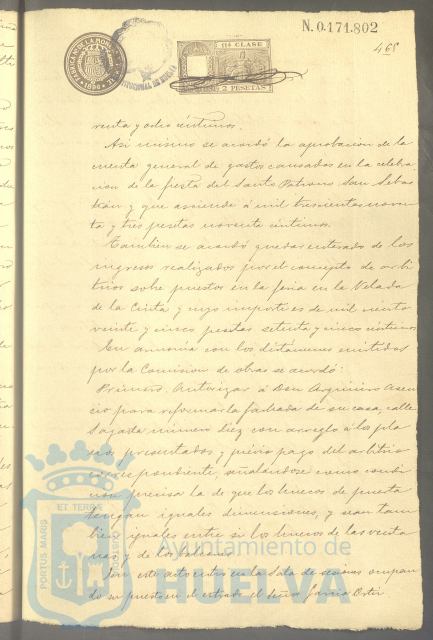 N. 0.171.802
468
11ª CLASE
2 PESETAS
venta y ocho céntimos.
Asi mismo se acordó la aprobacion de la
cuenta general de gastos causados en la celebra-
cion de la fiesta del Santo Patrono San Sebas-
tián y que asciende á mil trescientas noven-
ta y tres pesetas noventa céntimos.
Tambien se acordó quedar enterado de los
ingresos realizados por el concepto de arbi-
trios sobre puestos en la feria en la Velada
de la Cinta y cuyo importe es de mil ciento
veinte y cinco pesetas setenta y cinco céntimos
En armonía con los dictámenes emitidos
por la Comision de obras se acordó:
Primero. Autorizar á Don Argimiro Asen-
cio para reformar la fachada de su casa, calle
Sagasta número diez con arreglo á los pla-
nos presentados y prévio pago del arbitrio
correspondiente, señalándose como condi-
cion precisa la de que los huecos de puerta
tengan iguales dimensiones, y sean tam-
bien iguales entre si los huecos de las venta
nas y de los
En este acto entra en la Sala de sesiones ocupan-
do su puesto en el estrado el Señor Garcia
PORTUS MARIS
ET TERRÆ
CUSTODIA
Ayuntamiento de
HUELVA